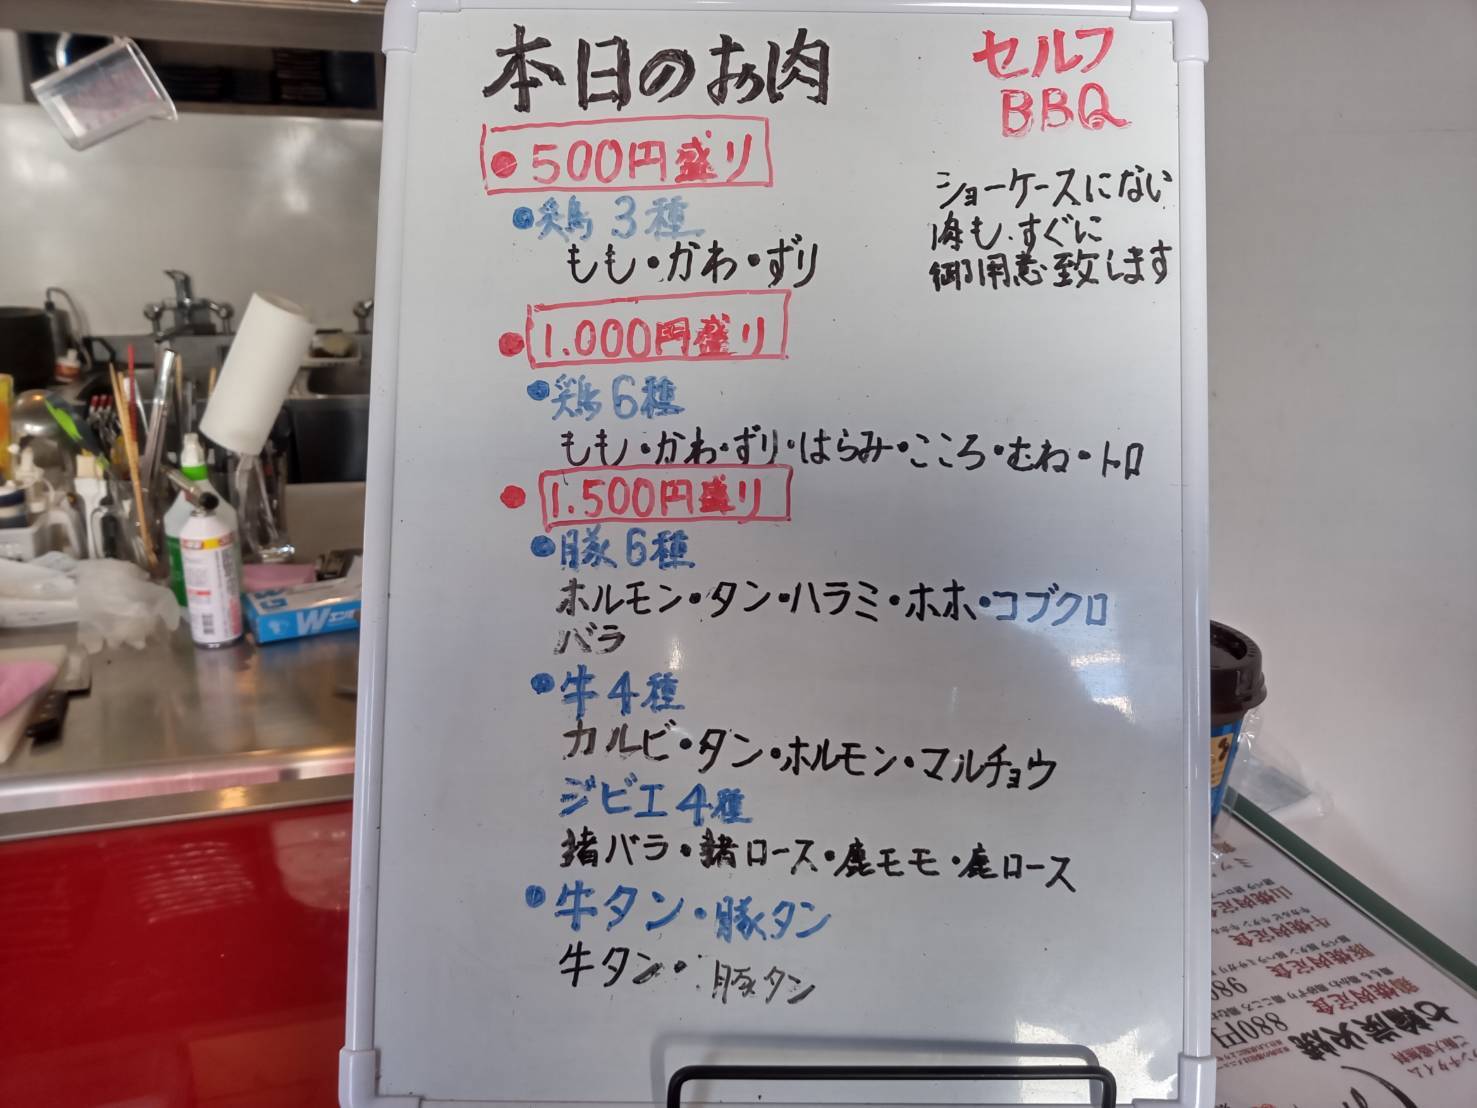 本日のお肉
セルフ
BBQ
ショーケースにない
肉も、すぐに
御用意致します
●500円盛り
●鶏3種
もも・かわ・ずり
●1.000円盛り
●鶏6種
もも・かわ・ずり・はらみ・こころ・むね・トロ
●1.500円盛り
●豚6種
ホルモン・タン・ハラミ・ホホ・コブクロ
バラ
●牛4種
カルビ・タン・ホルモン・マルチョウ
ジビエ4種
猪バラ・猪ロース・鹿モモ・鹿ロース
●牛タン・豚タン
牛タン・豚タン
牛焼肉定食
豚焼肉定食
鶏焼肉定食
880円
七輪炭火焼